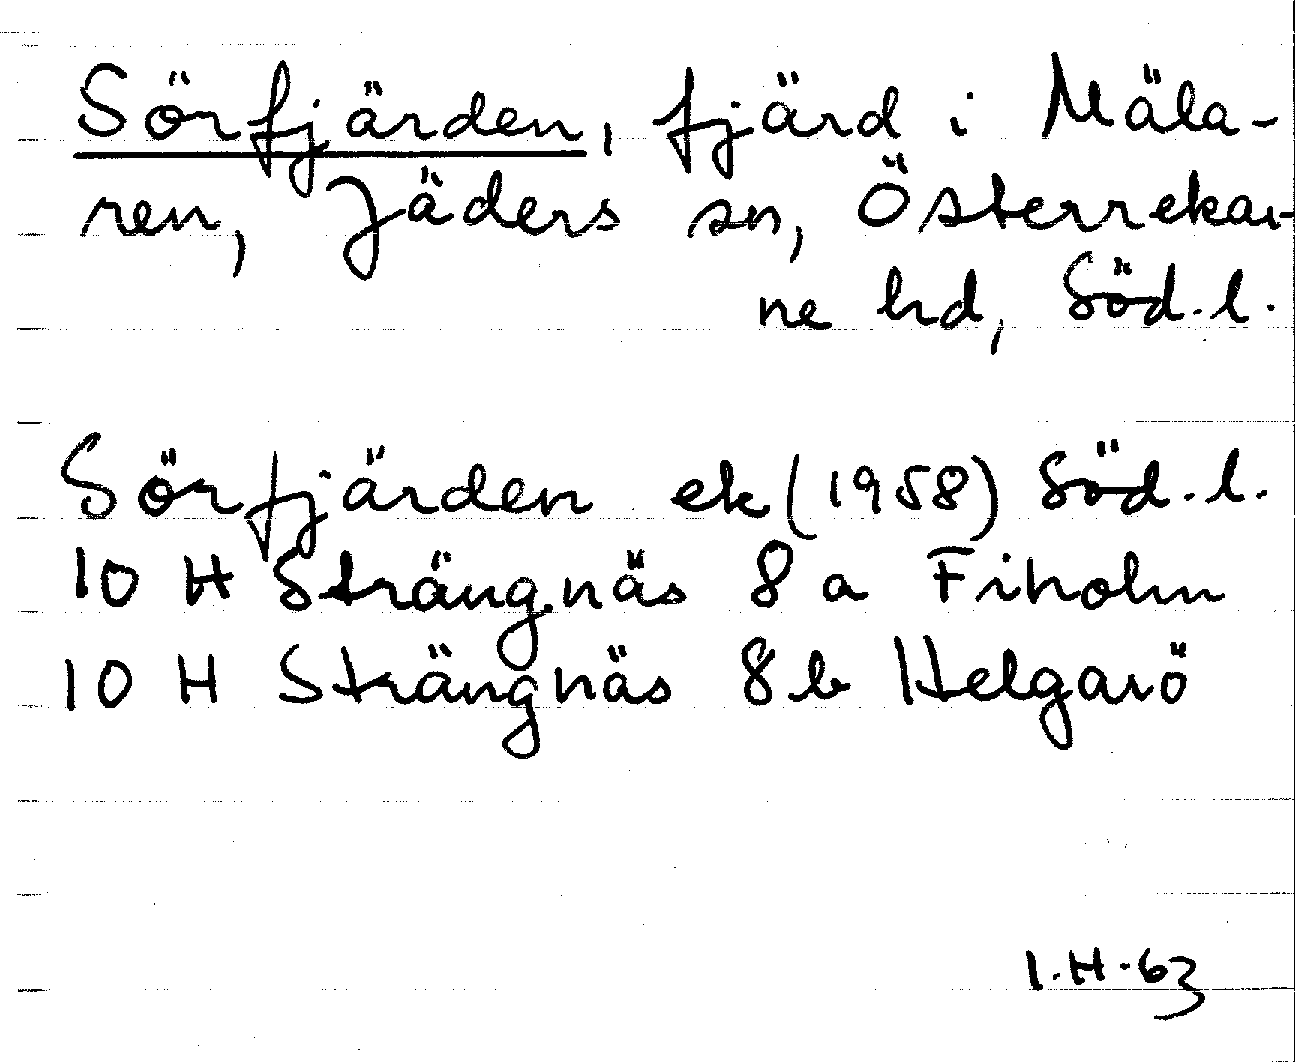 Sörfjärden, fjärd i Mäla-
ren, Jäders sn, Österrekar-
ne hd, Söd.l.
Sörfjärden ek (1958) Söd.l.
10 H Strängnäs 8 a Fiholm
10 H Strängnäs 8 b Helgarö
I.H.63